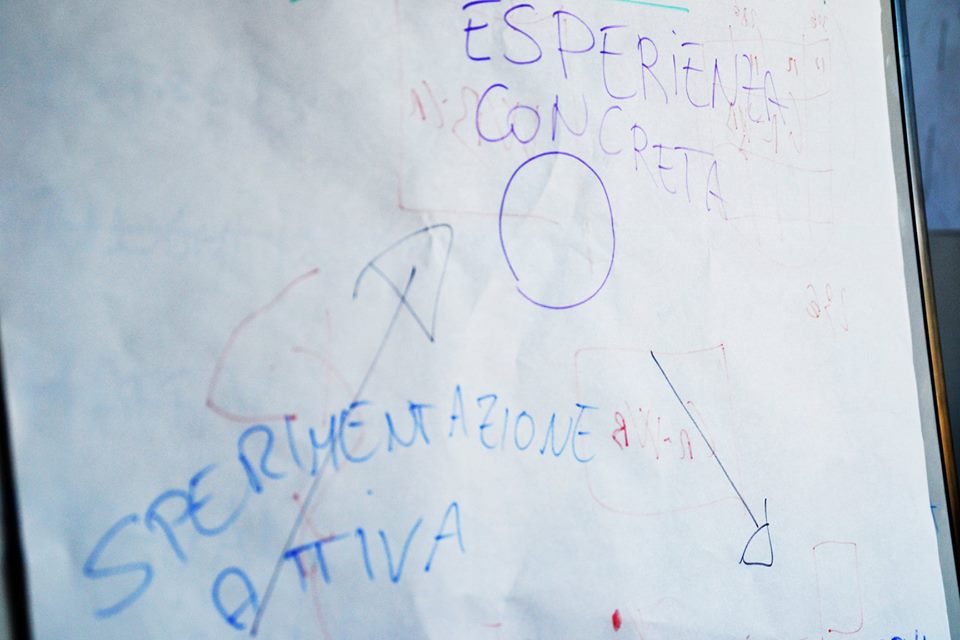 ESPERiENZA
CONCRETA
SPERIMENTAZIONE
ATTIVA